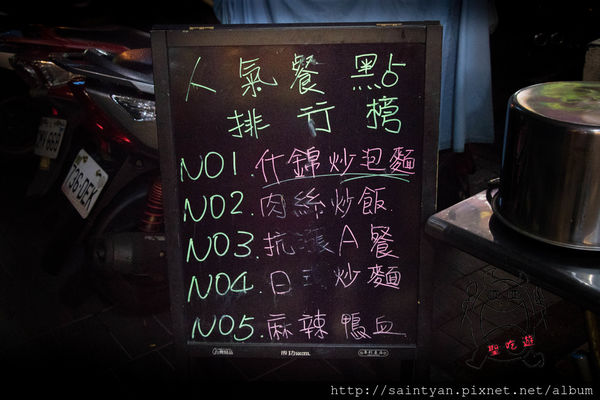 人氣餐點
排行榜
NO1.什錦炒泡麵
NO2.肉絲炒飯
NO3.抗漲A餐
NO4.日式炒麵
NO5.麻辣鴨血
聖吃遊
http://saintyan.pixnet.net/album